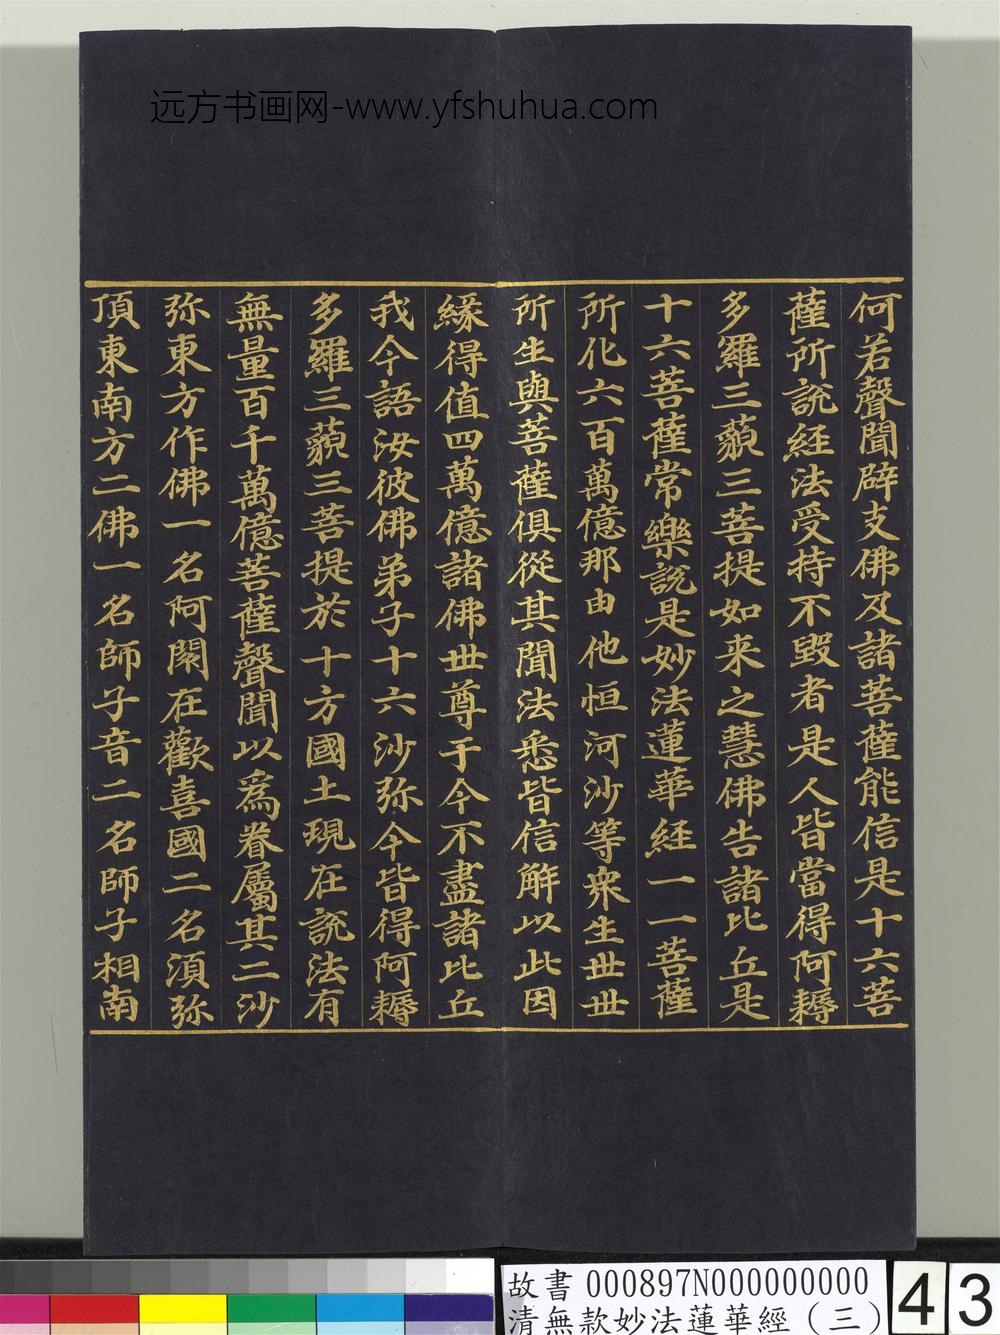 远方书画网-www.yfshuhua.com
何若聲聞辟支佛及諸菩薩能信是十六菩
薩所說經法受持不毀者是人皆當得阿耨
多羅三藐三菩提如来之慧佛告諸比丘是
十六菩薩常樂說是妙法蓮華経一一菩薩
所化六百萬億那由他恒河沙等衆生世世
所生與菩薩俱從其聞法悉皆信解以此因
緣得值四萬億諸佛世尊于今不盡諸比丘
我今語汝彼佛弟子十六沙弥今皆得阿耨
多羅三藐三菩提於十方國土現在說法有
無量百千萬億菩薩聲聞以為眷屬其二沙
弥東方作佛一名阿閦在歡喜國二名須弥
頂東南方二佛一名師子音二名師子相南
故書 000897N000000000
清無款妙法蓮華經（三）
43